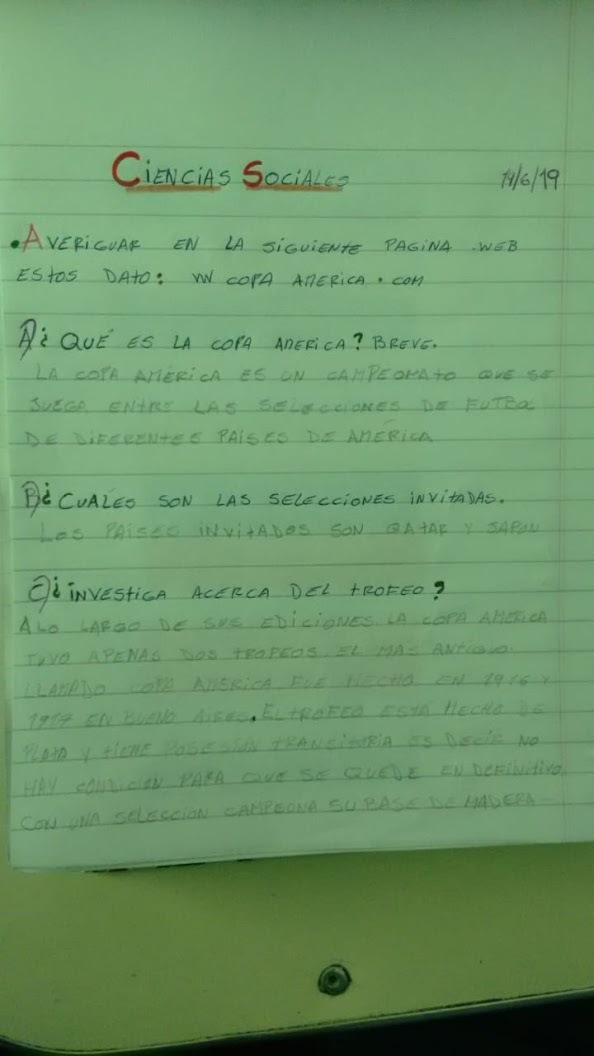 CIENCIAS SOCIALES 14/6/19
• AVERIGUAR EN LA SIGUIENTE PAGINA .WEB
ESTOS DATO: W COPA AMERICA . COM
A)¿ QUÉ ES LA COPA AMERICA? BREVE.
LA COPA AMÉRICA ES UN CAMPEONATO QUE SE
JUEGA ENTRE LAS SELECCIONES DE FUTBOL
DE DIFERENTES PAISES DE AMÉRICA
B)¿ CUALES SON LAS SELECCIONES INVITADAS.
LOS PAISES INVITADOS SON QATAR Y JAPON
C)¿ INVESTIGA ACERCA DEL TROFEO?
A LO LARGO DE SUS EDICIONES LA COPA AMERICA
TUVO APENAS DOS TROFEOS EL MAS ANTIGUO
LLAMADO COPA AMERICA FUE HECHO EN 1916 Y
EN BUENO AIRES. EL TROFEO ESTA HECHO DE
PLATA Y TIENE POSESION TRANSITORIA ES DECIR NO
HAY CONDICION PARA QUE SE QUEDE EN DEFINITIVO
CON UNA SELECCION CAMPEONA SU BASE DE MADERA